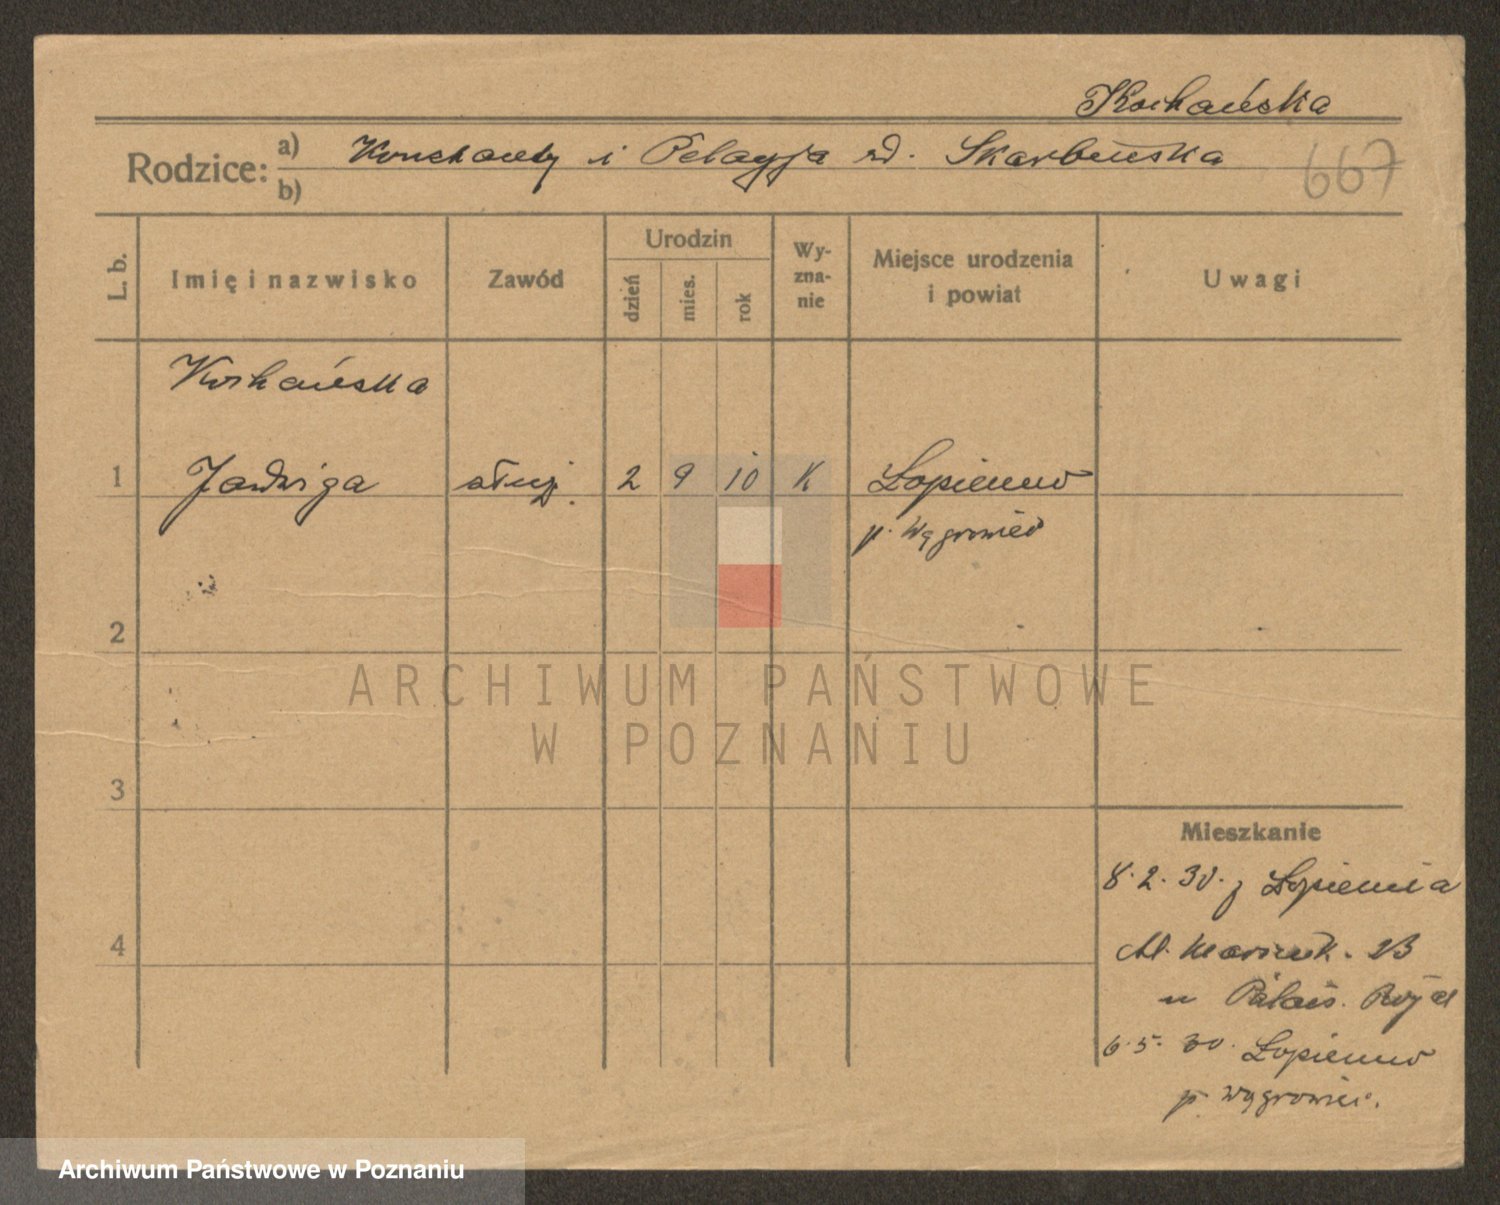 Kochańska
Rodzice: a) Konstanty i Pelagja rd. Skarbińska
b)
667
L. b.
Imię i nazwisko
Zawód
Urodzin
dzień
mies.
rok
Wy-
zna-
nie
Miejsce urodzenia
i powiat
Uwagi
Kochańska
1 Jadwiga służ. 2 9 10 K Łopienno
p. Wągrowiec
2
ARCHIWUM PAŃSTWOWE
W POZNANIU
3
Mieszkanie
8.2.30. z Łopienna
4
Al. Marcink. 23
u Palais. Royal
6.5.30. Łopienno
p. Wągrowiec.
Archiwum Państwowe w Poznaniu